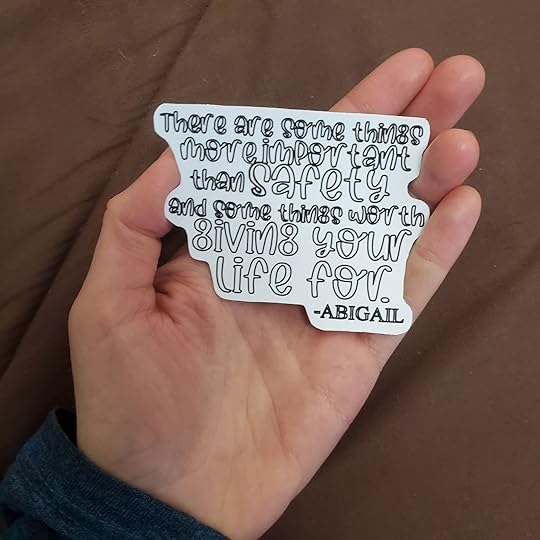 There are some things
more important
than safety
and some things worth
giving your
life for.
-ABIGAIL